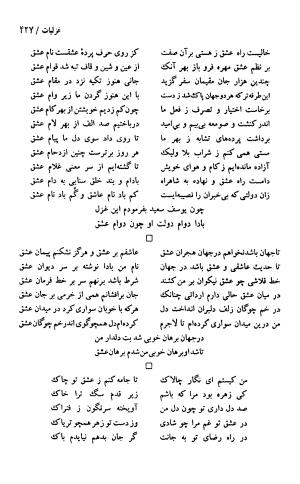 غزلیات / ۴۲۷
خالیست راه عشق ز هستی برآن صفت کز روی حرف پردهٔ عشقست نام عشق
بر نظم عشق مهره فرو باز بهر آنک از عین و شین و قاف تبه شد قوام عشق
چندین هزار جان مقیمان سفر گزید جانی هنوز تکیه نزد در مقام عشق
این طرفه تر که هر دو جهان پاک شد ز دست با این هنوز گردن ما زیر وام عشق
برخاست اختیار و تصرف ز فعل ما چون کم زدیم خویشتن از بهر کام عشق
اندر کنشت و صومعه بی بیم و بی امید درباختیم صد الف از بهر لام عشق
برداشت پرده های تشابه ز بهر ما تا روی داد سوی دل ما پیام عشق
مستی همی کنم ز شراب بلا ولیک هر روز برترست چنین ازدحام عشق
آزاده مانده ایم ز کام و هوای خویش تا گشته ایم از سر معنی غلام عشق
دامست راه عشق و نهاده به شاهراه بادام و بند خلق سنایی به دام عشق
زان دولتی که بی خبران را نصیبه ایست کم باد نام عاشق و گم باد نام عشق
چون یوسف سعید بفرمودم این غزل
بادا دوام دولت او چون دوام عشق
تا جهان باشد نخواهم در جهان هجران عشق عاشقم بر عشق و هرگز نشکنم پیمان عشق
تا حدیث عاشقی و عشق باشد در جهان نام من بادا نوشته بر سر دیوان عشق
خط قلاشی چو عشق نیکوان بر من کشند شرط باشد برنهم سر بر خط فرمان عشق
در میان عشق حالی دارم ار دانی چنانک جان برافشانم همی از خرمی بر جان عشق
در خم چوگان زلف دلبران انداخت دل هرکه با خوبان سواری کرد در میدان عشق
من درین میدان سواری کرده ام تا لاجرم کرده ام دل همچو گوی اندر خم چوگان عشق
در جهان برهان خوبی شد بت دلدار من
تا شد او برهان خوبی من شدم برهان عشق
من کیستم ای نگار چالاک تا جامه کنم ز عشق تو چاک
کی زهره بود مرا که باشم زیر قدم سگ ترا خاک
صد دل داری تو چون دل من آویخته سرنگون ز فتراک
در عشق تو غم مرا چو شادی وز دست تو زهر همچو تریاک
در راه رضای تو به جانت گر جان بدهم نیایدم باک